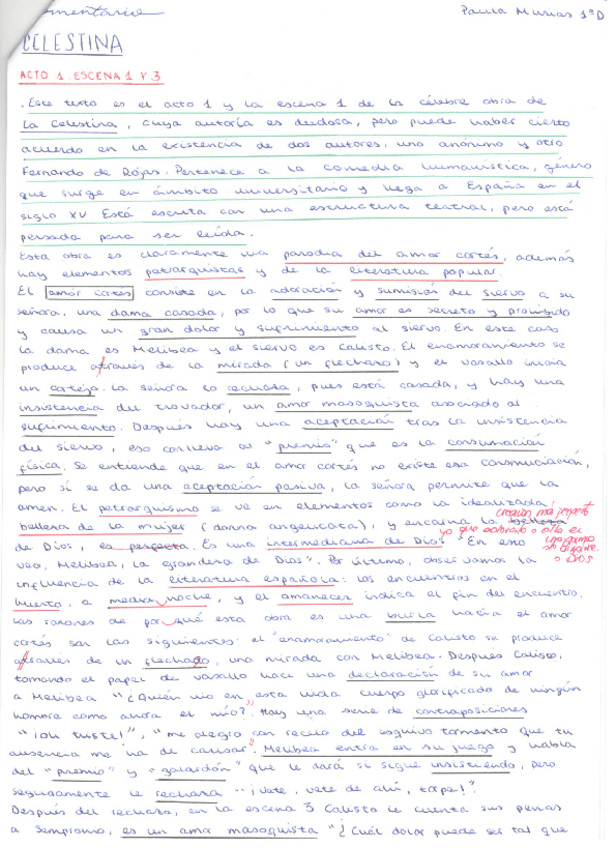 mentario Paula Murias 1ºD
CELESTINA
ACTO 1. ESCENA 1 Y 3
. Este texto es el acto 1 y la escena 1 de la célebre obra de
La Celestina, cuya autoría es dudosa, pero puede haber cierto
acuerdo en la existencia de dos autores, uno anónimo y otro
Fernando de Rojas. Pertenece a la comedia humanística, género
que surge en ámbito universitario y llega a España en el
siglo XV Está escrita con una estructura teatral, pero está
pensada para ser leída.
Esta obra es claramente una parodia del amor cortés, además
hay elementos petrarquistas y de la literatura popular.
El amor cortés consiste en la adoración y sumisión del siervo a su
señora, una dama casada, por lo que su amor es secreto y prohibido
y causa un gran dolor y sufrimiento al siervo. En este caso
la dama es Melibea y el siervo es Calisto. El enamoramiento se
produce através de la mirada (un flechazo) y el vasallo inicia
un cortejo. La señora lo rechaza, pues está casada, y hay una
insistencia del trovador, un amor masoquista asociado al
sufrimiento. Después hay una aceptación tras la insistencia
del siervo, eso conlleva al "premio" que es la consumación
física. Se entiende que en el amor cortés no existe esa consmuciación,
pero sí se da una aceptación pasiva, la señora permite que la
amen. El petrarquismo se ve en elementos como la idealizada
creación más perfecta
belleza de la mujer (donna angelicata), y encarna la belleza
ya que adorarla a ella es
de Dios, es perfecta. Es una intermediaria de Dios "En esto
uno como
veo, Melibea, la grandeza de Dios". Por último, observamos la
a Dios
influencia de la literatura española: los encuentros en el
huerto, a media noche, y el amanecer indica el fin del encuentro.
Las razones de por qué esta obra es una burla hacia el amor
cortés son las siguientes: el "enamoramiento" de Calisto se produce
através de un flechazo, una mirada con Melibea. Después Calisto,
tomando el papel de vasallo hace una declaración de su amor
a Melibea "¿Quién vio en esta vida cuerpo glorificado de ningún
hombre como ahora el mío?" Hay una serie de contraposiciones
"¡oh triste!", "me alegro con recelo del esquivo tormento que tu
ausencia me ha de causar". Melibea entra en su juego y habla
del "premio" y "galardón" que le dará si sigue insistiendo, pero
seguidamente le rechaza "¡vete, vete de ahí, torpe!"
Después del rechazo, en la escena 3 Calisto le cuenta sus penas
a Sempronio, es un amor masoquista "¿Cuál dolor puede ser tal que